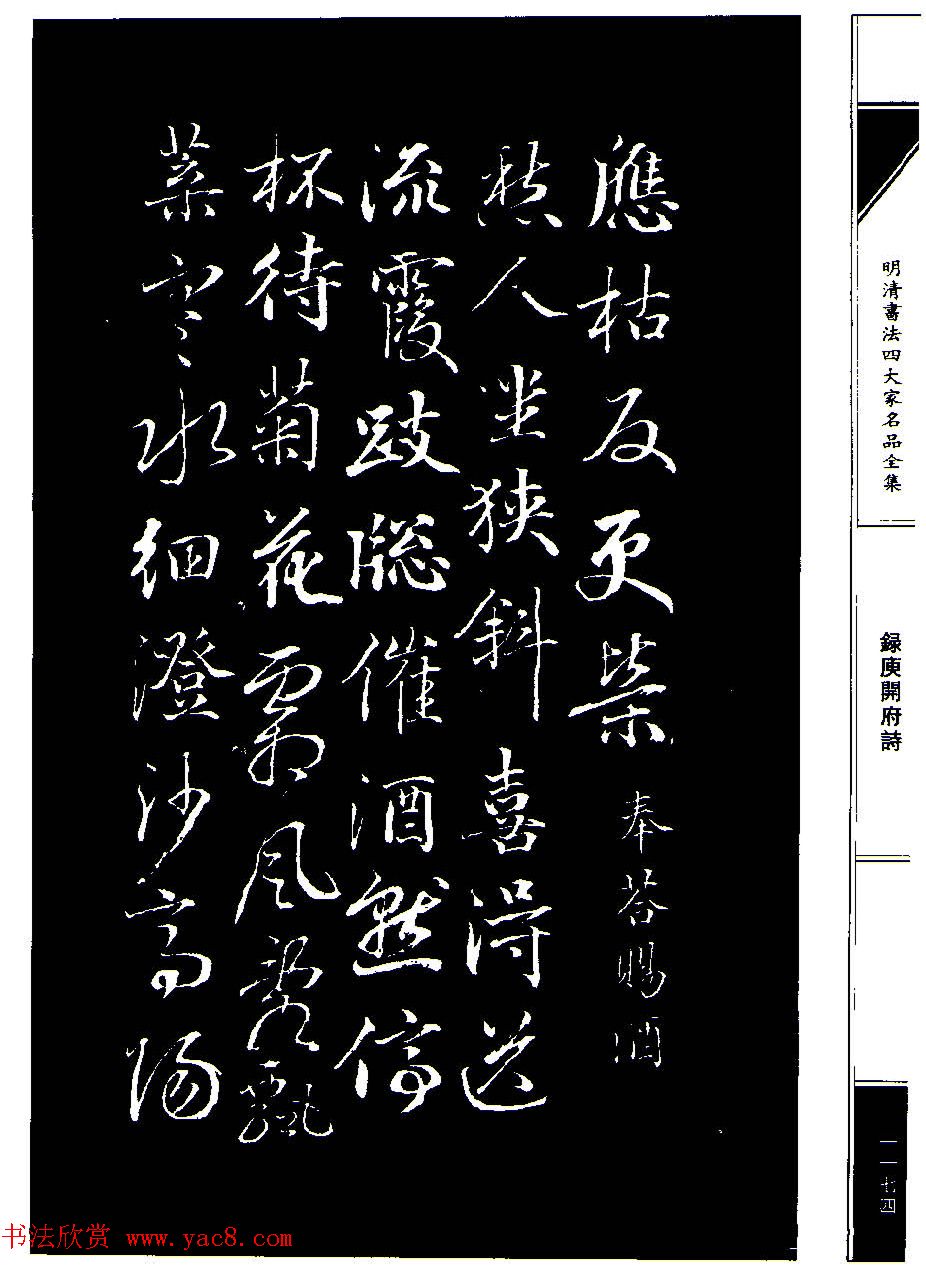 應枯反更榮 奉荅賜酒
愁人坐狹斜喜得送
流霞跂牕催酒熟停
杯待菊花霜風亂飄
葉寒水細澄沙高陽
明清書法四大家名品全集
録庾開府詩
一一七四
书法欣赏 www.yac8.com